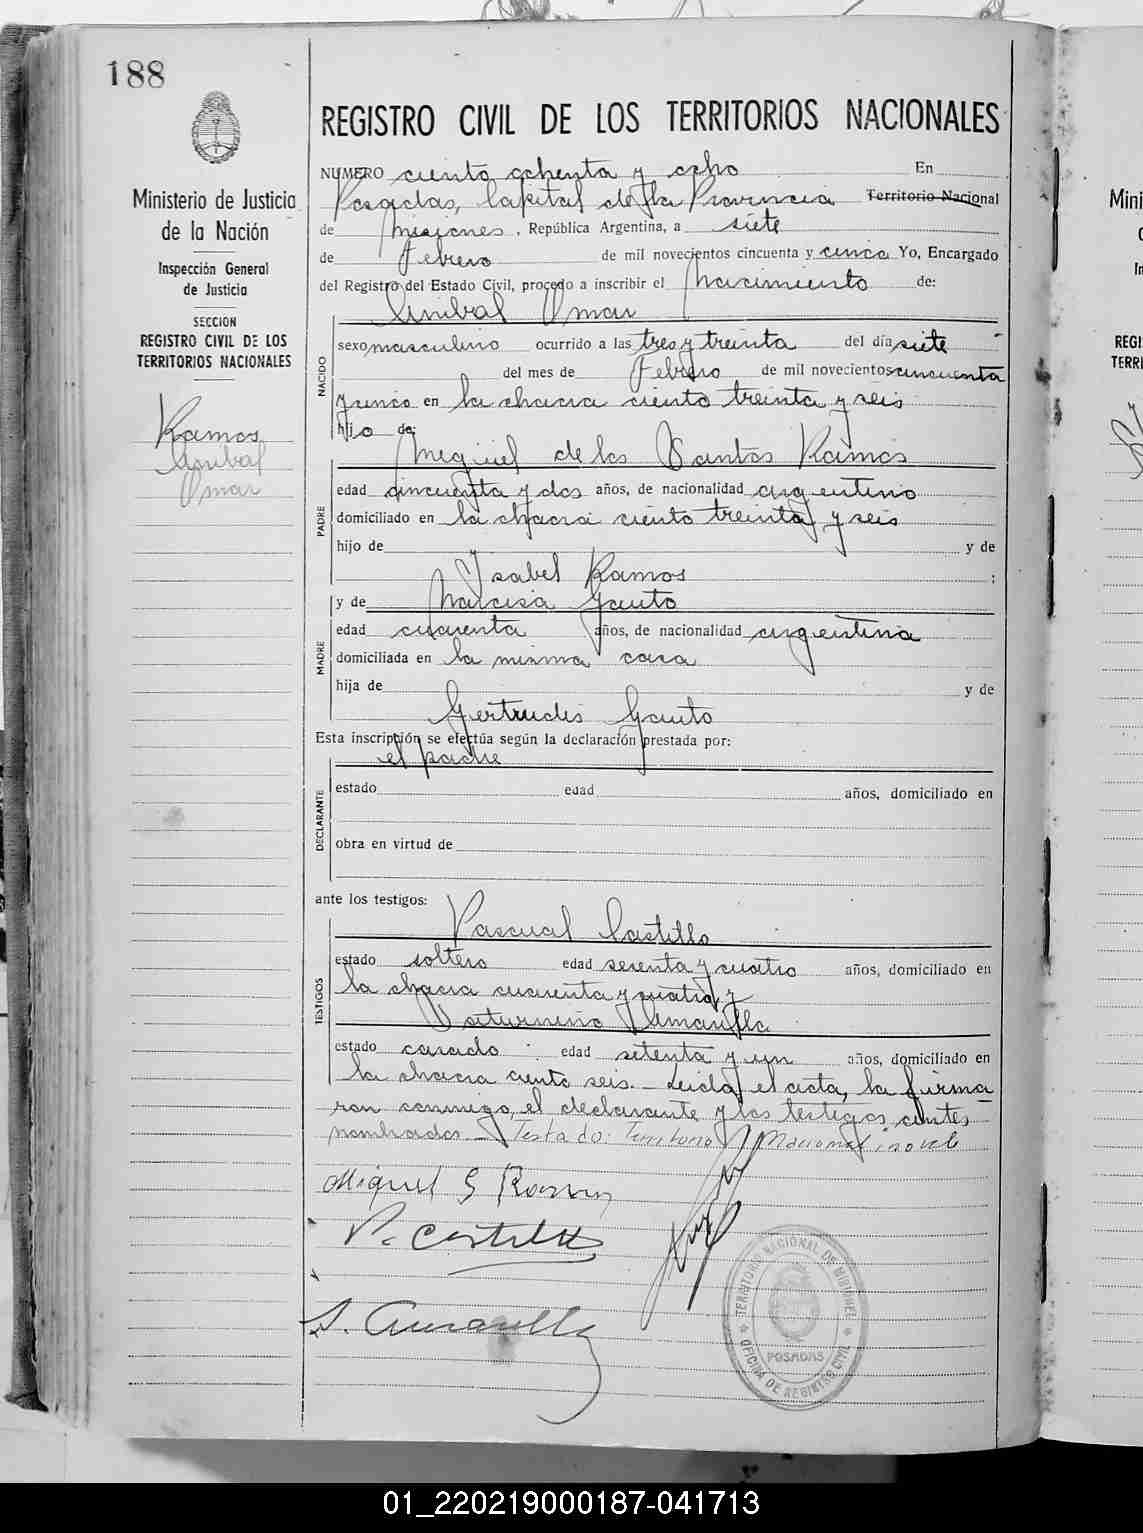 188
Ministerio de Justicia
de la Nación
Inspección General
de Justicia
SECCION
REGISTRO CIVIL DE LOS
TERRITORIOS NACIONALES
Ramos
Anibal
Omar
REGISTRO CIVIL DE LOS TERRITORIOS NACIONALES
NUMERO ciento ochenta y ocho En
Posadas, Capital de la Provincia Territorio Nacional
de Misiones, República Argentina, a siete
de Febrero de mil novecientos cincuenta y cinco Yo, Encargado
del Registro del Estado Civil, procedo a inscribir el Nacimiento de:
Anibal Omar
NACIDO
sexo masculino ocurrido a las tres y treinta del día siete
del mes de Febrero de mil novecientos cincuenta
y cinco en la chacra ciento treinta y seis
hijo de:
Miguel de los Santos Ramos
PADRE
edad cincuenta y dos años, de nacionalidad argentino
domiciliado en la chacra ciento treinta y seis
hijo de y de
Ysabel Ramos ;
y de Narcisa Gauto
MADRE
edad cuarenta años, de nacionalidad argentina
domiciliada en la misma casa
hija de y de
Gertrudis Gauto
Esta inscripción se efectúa según la declaración prestada por:
el padre
DECLARANTE
estado edad años, domiciliado en
obra en virtud de
ante los testigos:
Pascual Castillo
TESTIGOS
estado soltero edad sesenta y cuatro años, domiciliado en
la chacra cuarenta y cuatro y
Saturnino Amarilla
estado casado edad setenta y un años, domiciliado en
la chacra ciento seis.- Leida el acta, la firma
ron conmigo, el declarante y los testigos antes
nombrados.- Testado: Territorio Nacional: no vale
Miguel S Ramos
P. Castillo
S. Amarilla
TERRITORIO NACIONAL DE MISIONES
POSADAS
OFICINA DE REGISTRO CIVIL
Mini
REGI
TERRI
01_220219000187-041713